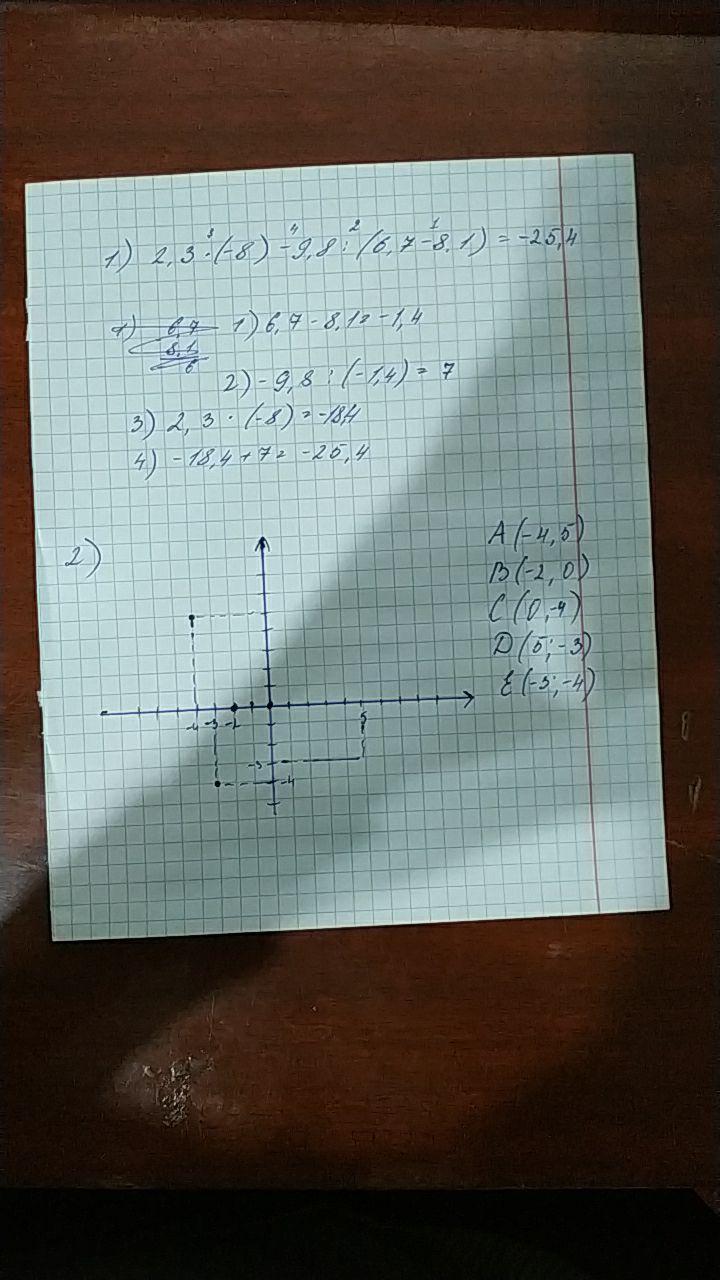 3 4 2 1
1) 2,3 · (-8) - 9,8 : (6,7 - 8,1) = -25,4
1) 6,7 1) 6,7 - 8,1 = -1,4
8,1
6
2) - 9,8 : (-1,4) = 7
3) 2,3 · (-8) = -18,4
4) -18,4 + 7 = -25,4
2)
A (-4, 5)
B (-2, 0)
C (0, -4)
D (5; -3)
E (-3; -4)
-4 -3 -2 5
-3
-4